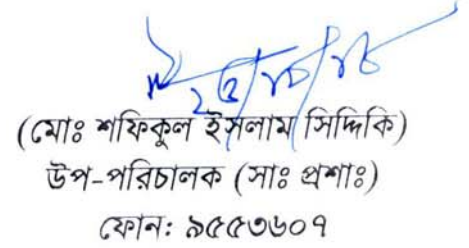 (মোঃ শফিকুল ইসলাম সিদ্দিকি)
উপ-পরিচালক (সাঃ প্রশাঃ)
ফোন: ৯৫৫৩৬০৭